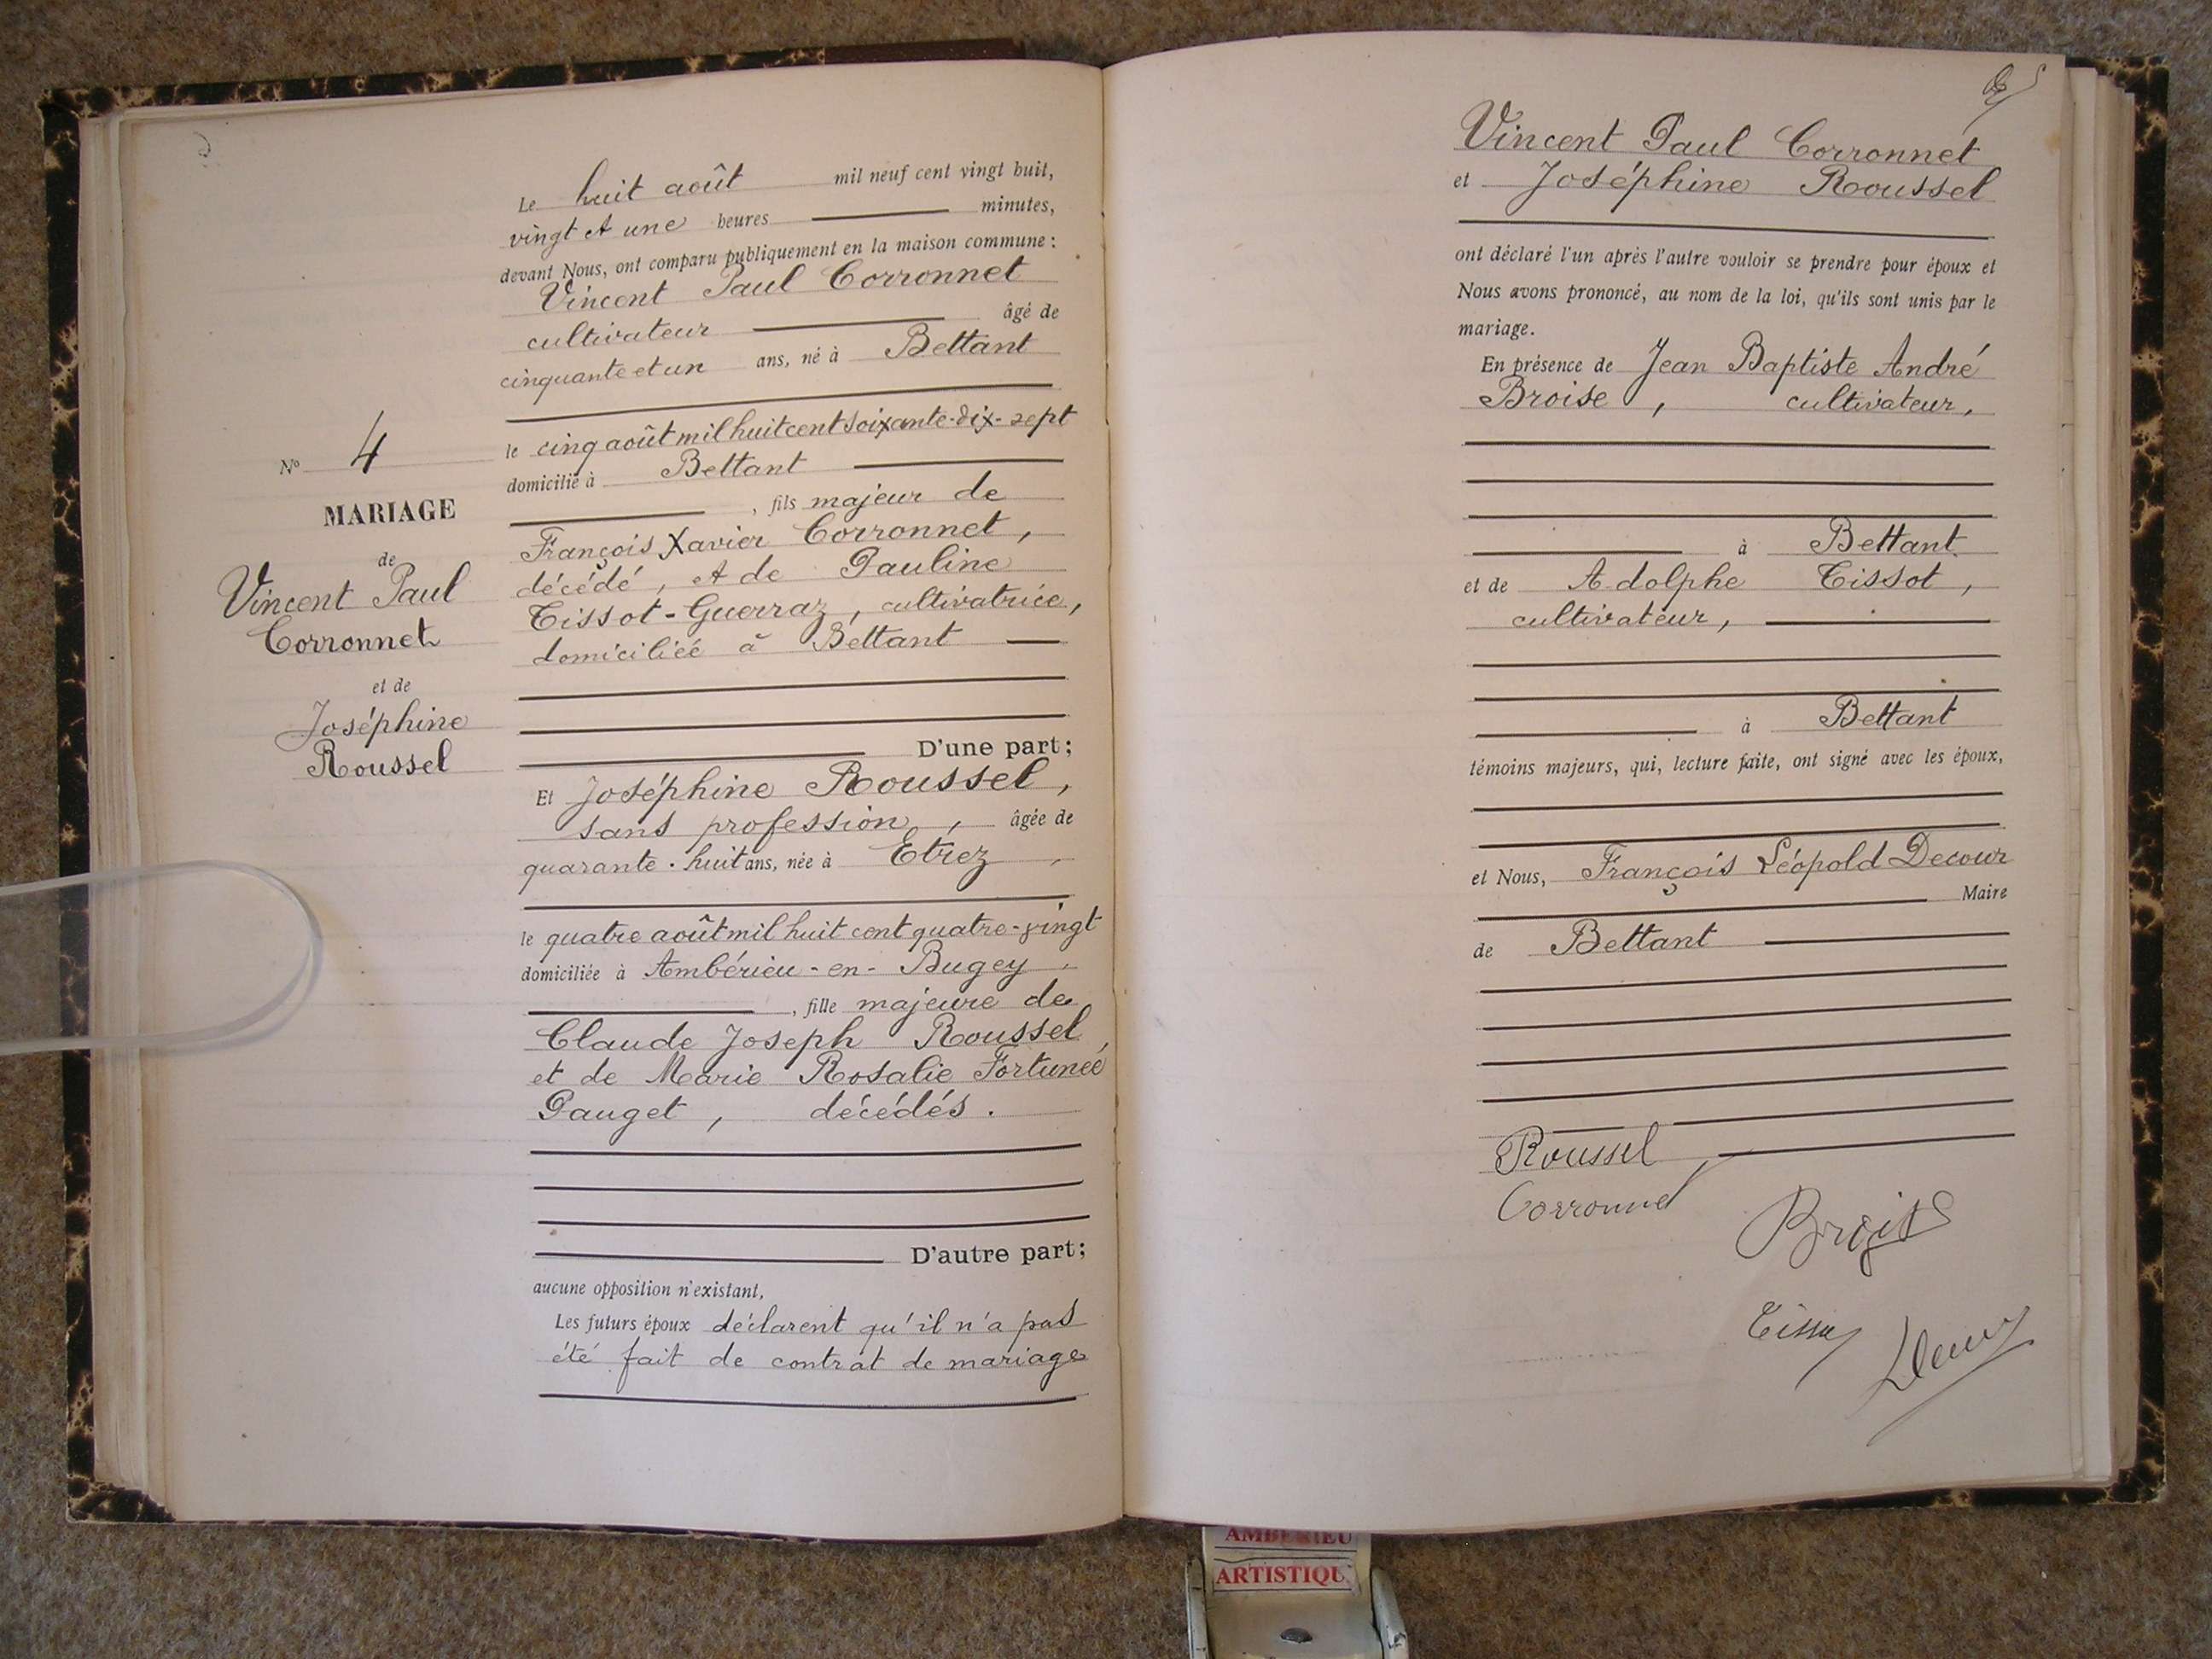 Le huit août mil neuf cent vingt huit,
vingt et une heures minutes,
devant Nous, ont comparu publiquement en la maison commune :
Vincent Paul Corronnet
cultivateur âgé de
cinquante et un ans, né à Bettant
le cinq août mil huit cent soixante-dix-sept
domicilié à Bettant
, fils majeur de
François Xavier Corronnet,
décédé, et de Pauline
Tissot-Guerraz, cultivatrice,
domiciliée à Bettant
D'une part;
Et Joséphine Roussel,
sans profession, âgée de
quarante-huit ans, née à Etrez
le quatre août mil huit cent quatre-vingt
domiciliée à Ambérieu-en-Bugey
, fille majeure de
Claude Joseph Roussel,
et de Marie Rosalie Fortunée
Pauget, décédés.
D'autre part;
aucune opposition n'existant,
Les futurs époux déclarent qu'il n'a pas
été fait de contrat de mariage
No 4
MARIAGE
de
Vincent Paul
Corronnet
et de
Joséphine
Roussel
Vincent Paul Corronnet
et Joséphine Roussel
ont déclaré l'un après l'autre vouloir se prendre pour époux et
Nous avons prononcé, au nom de la loi, qu'ils sont unis par le
mariage.
En présence de Jean Baptiste André
Broise, cultivateur,
à Bettant
et de Adolphe Tissot,
cultivateur,
à Bettant
témoins majeurs, qui, lecture faite, ont signé avec les époux,
et Nous, François Léopold Decour
Maire
de Bettant
Roussel
Corronnet
Broise
Tissot
AMBERIEU
ARTISTIQU